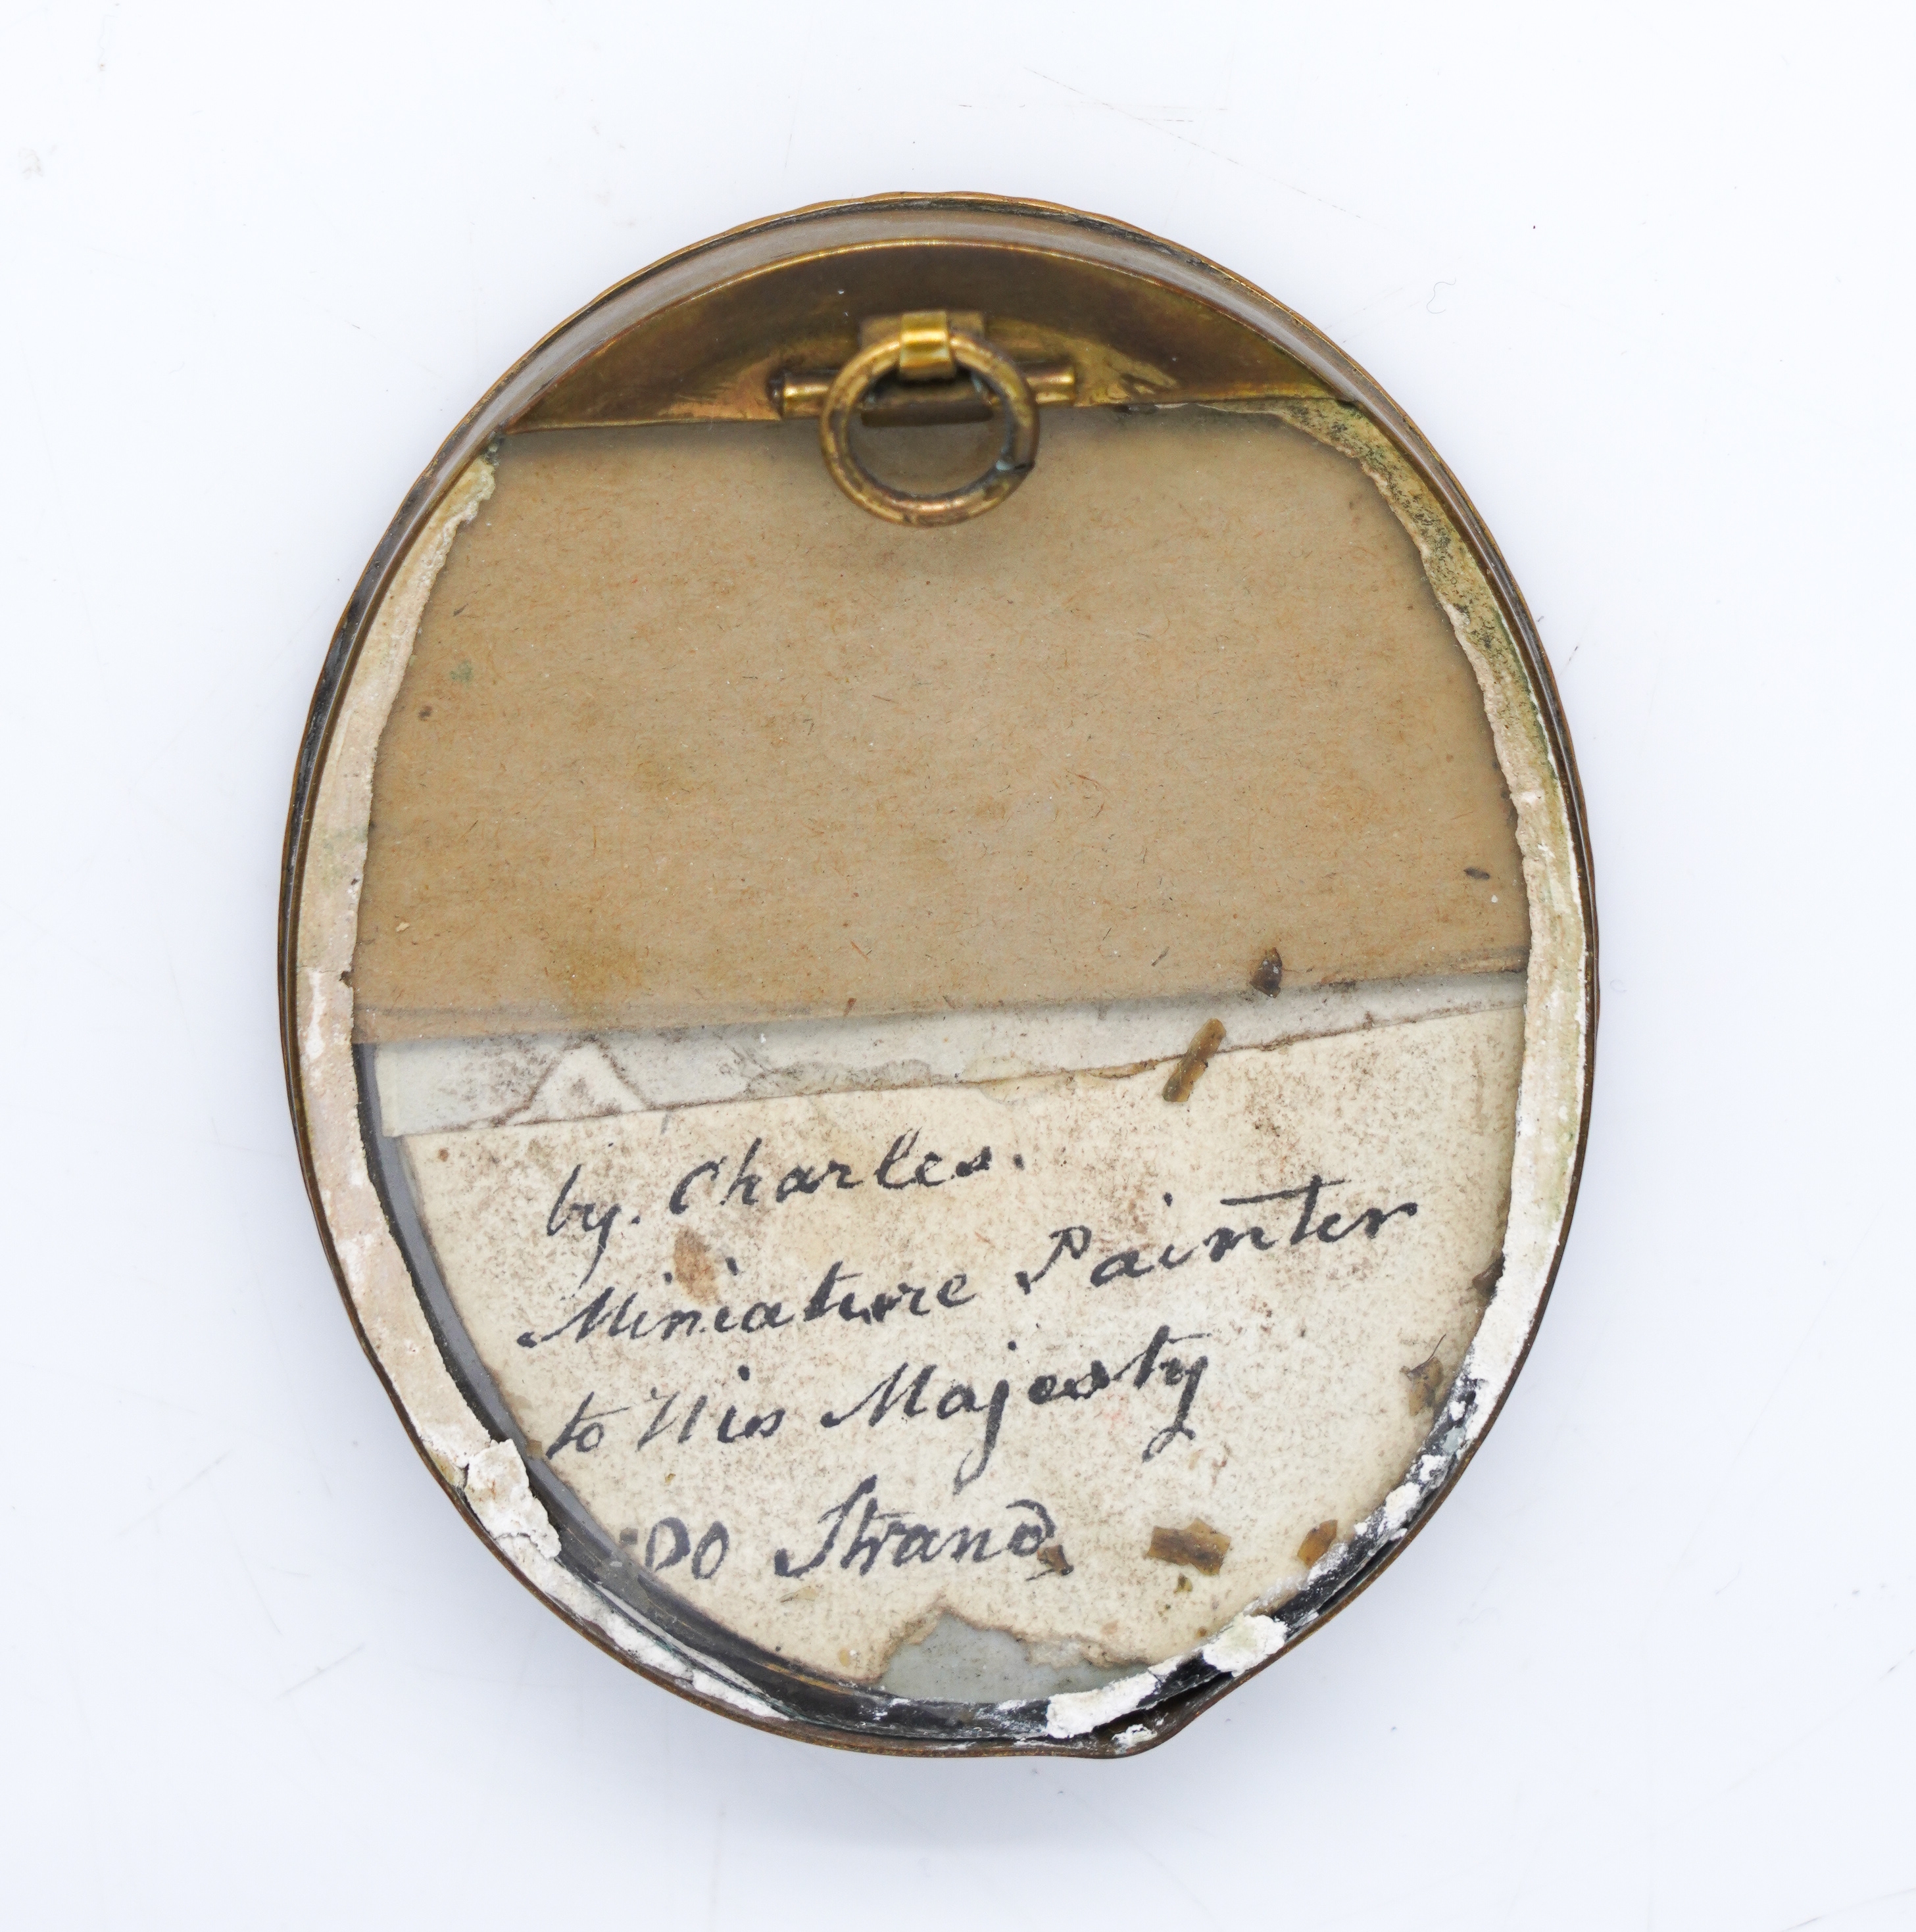 by. Charles.
Miniature Painter
to His Majesty
Strand